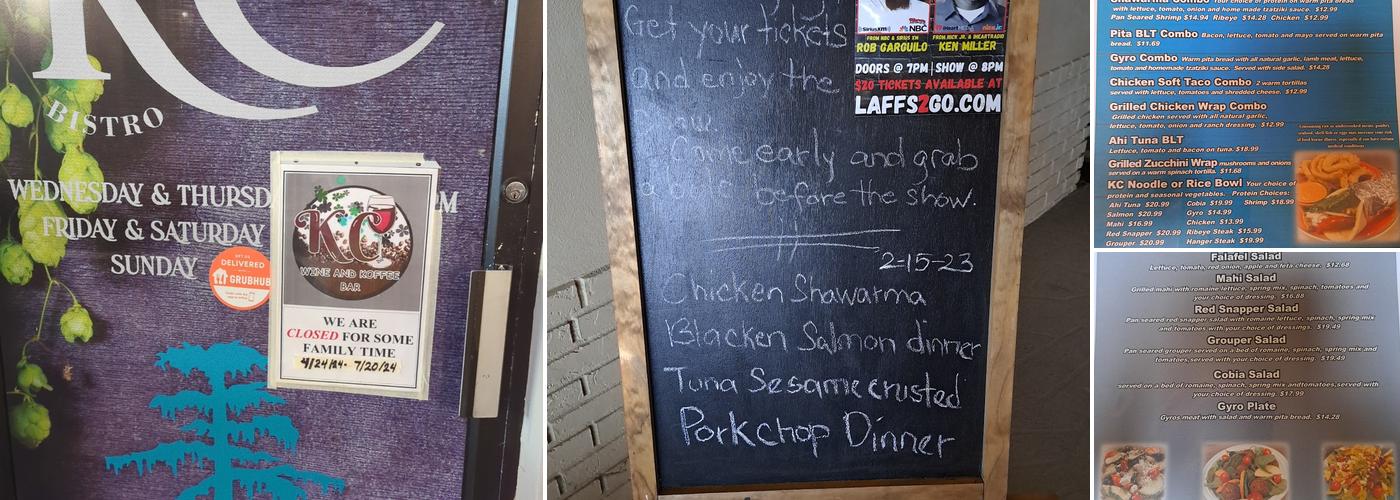 KC
BISTRO
WEDNESDAY & THURSD
PM
FRIDAY & SATURDAY
SUNDAY
GET IT
DELIVERED
GRUBHUB
KC
WINE AND KOFFEE
BAR
WE ARE
CLOSED FOR SOME
FAMILY TIME
4/24/24 - 7/20/24
Get your tickets
and enjoy the
early and grab
before the show.
2-15-23
Chicken Shawarma
Blacken Salmon dinner
Tuna Sesame crusted
Porkchop Dinner
SiriusXM NBC
iHeart nick jr.
FROM NBC & SIRIUS XM
ROB GARGUILO
FROM NICK JR. & IHEARTRADIO
KEN MILLER
DOORS @ 7PM SHOW @ 8PM
$20 TICKETS AVAILABLE AT
LAFFS2GO.COM
Shawarma Combo Your choice of protein on warm pita bread
with lettuce, tomato, onion and home made tzatziki sauce. $12.99
Pan Seared Shrimp $14.94 Ribeye $14.28 Chicken $12.99
Pita BLT Combo Bacon, lettuce, tomato and mayo served on warm pita
bread. $11.69
Gyro Combo Warm pita bread with all natural garlic, lamb meat, lettuce,
tomato and homemade tzatziki sauce. Served with side salad. $14.28
Chicken Soft Taco Combo 2 warm tortillas
served with lettuce, tomatoes and shredded cheese. $12.99
Grilled Chicken Wrap Combo
Grilled chicken served with all natural garlic,
lettuce, tomato, onion and ranch dressing. $12.99
Ahi Tuna BLT
Lettuce, tomato and bacon on tuna. $18.99
Grilled Zucchini Wrap mushrooms and onions
served on a warm spinach tortilla. $11.68
KC Noodle or Rice Bowl Your choice of
protein and seasonal vegetables. Protein Choices:
Ahi Tuna $20.99 Cobia $19.99 Shrimp $18.99
Salmon $20.99 Gyro $14.99
Mahi $16.99 Chicken $13.99
Red Snapper $20.99 Ribeye Steak $15.99
Grouper $20.99 Hanger Steak $19.99
Falafel Salad
Lettuce, tomato, red onion, apple and feta cheese. $12.68
Mahi Salad
Grilled mahi with romaine lettuce, spring mix, spinach, tomatoes and
your choice of dressing. $16.88
Red Snapper Salad
Pan seared red snapper salad with romaine lettuce, spinach, spring mix
and tomatoes with your choice of dressings. $19.49
Grouper Salad
Pan seared grouper served on a bed of romaine, spinach, spring mix and
tomatoes, served with your choice of dressing. $19.49
Cobia Salad
served on a bed of romaine, spinach, spring mix andtomatoes,served with
your choice of dressing. $17.99
Gyro Plate
Gyros meat with salad and warm pita bread. $14.28